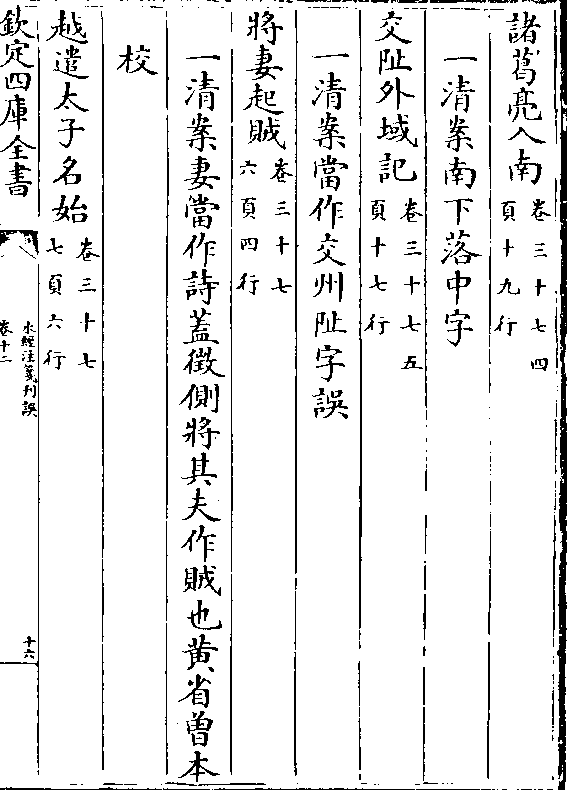 諸葛亮入南卷三十七四頁十九行
一清案南下落中字
交阯外域記卷三十七五頁十七行
一清案當作交州阯字誤
將妻起賊卷三十七六頁四行
一清案妻當作詩蓋徵側將其夫作賊也黄省曾本
校
越遣太子名始卷三十七七頁六行
欽定四庫全書
水經注箋刊誤
卷十二
十六